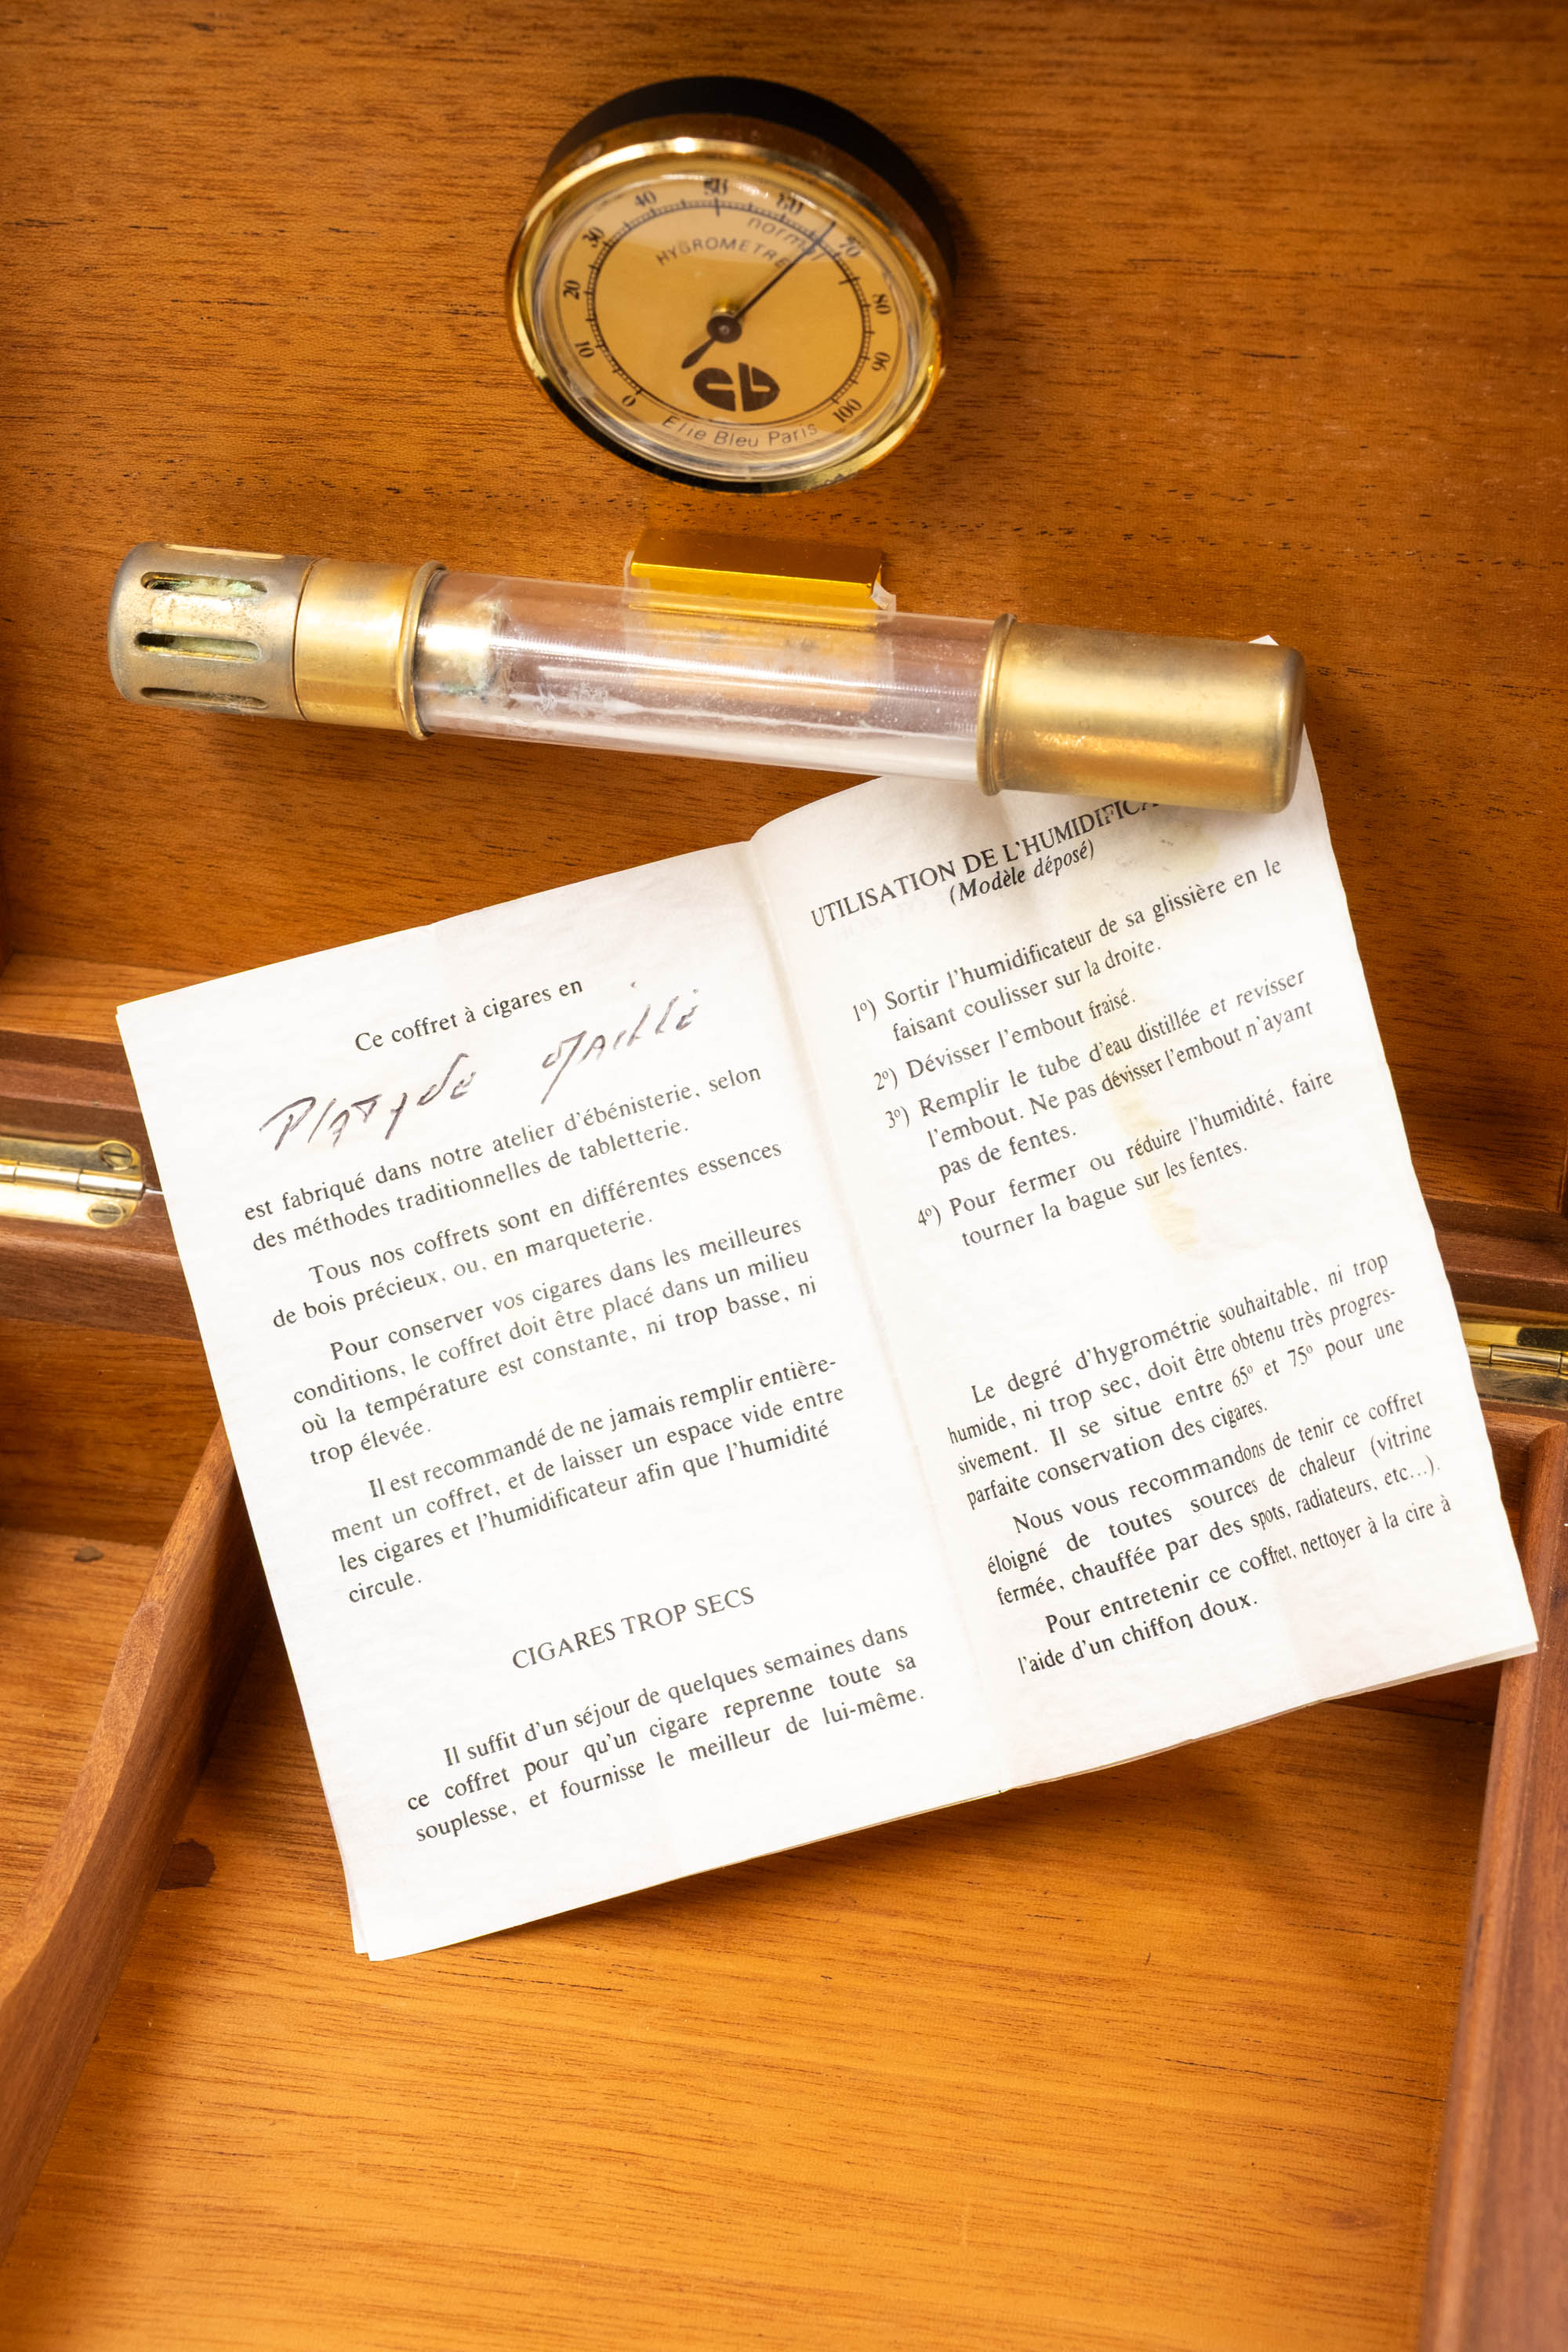 0 10 20 30 40 50 60 70 80 90 100
normal
HYGROMETRE
Elie Bleu Paris
Ce coffret à cigares en
est fabriqué dans notre atelier d'ébénisterie, selon
des méthodes traditionnelles de tabletterie.
Tous nos coffrets sont en différentes essences
de bois précieux, ou, en marqueterie.
Pour conserver vos cigares dans les meilleures
conditions, le coffret doit être placé dans un milieu
où la température est constante, ni trop basse, ni
trop élevée.
Il est recommandé de ne jamais remplir entière-
ment un coffret, et de laisser un espace vide entre
les cigares et l'humidificateur afin que l'humidité
circule.
CIGARES TROP SECS
Il suffit d'un séjour de quelques semaines dans
ce coffret pour qu'un cigare reprenne toute sa
souplesse, et fournisse le meilleur de lui-même.
UTILISATION DE L'HUMIDIFICA
(Modèle déposé)
1º) Sortir l'humidificateur de sa glissière en le
faisant coulisser sur la droite.
2º) Dévisser l'embout fraisé.
3º) Remplir le tube d'eau distillée et revisser
l'embout. Ne pas dévisser l'embout n'ayant
pas de fentes.
4º) Pour fermer ou réduire l'humidité, faire
tourner la bague sur les fentes.
Le degré d'hygrométrie souhaitable, ni trop
humide, ni trop sec, doit être obtenu très progres-
sivement. Il se situe entre 65º et 75º pour une
parfaite conservation des cigares.
Nous vous recommandons de tenir ce coffret
éloigné de toutes sources de chaleur (vitrine
fermée, chauffée par des spots, radiateurs, etc...).
Pour entretenir ce coffret, nettoyer à la cire à
l'aide d'un chiffon doux.